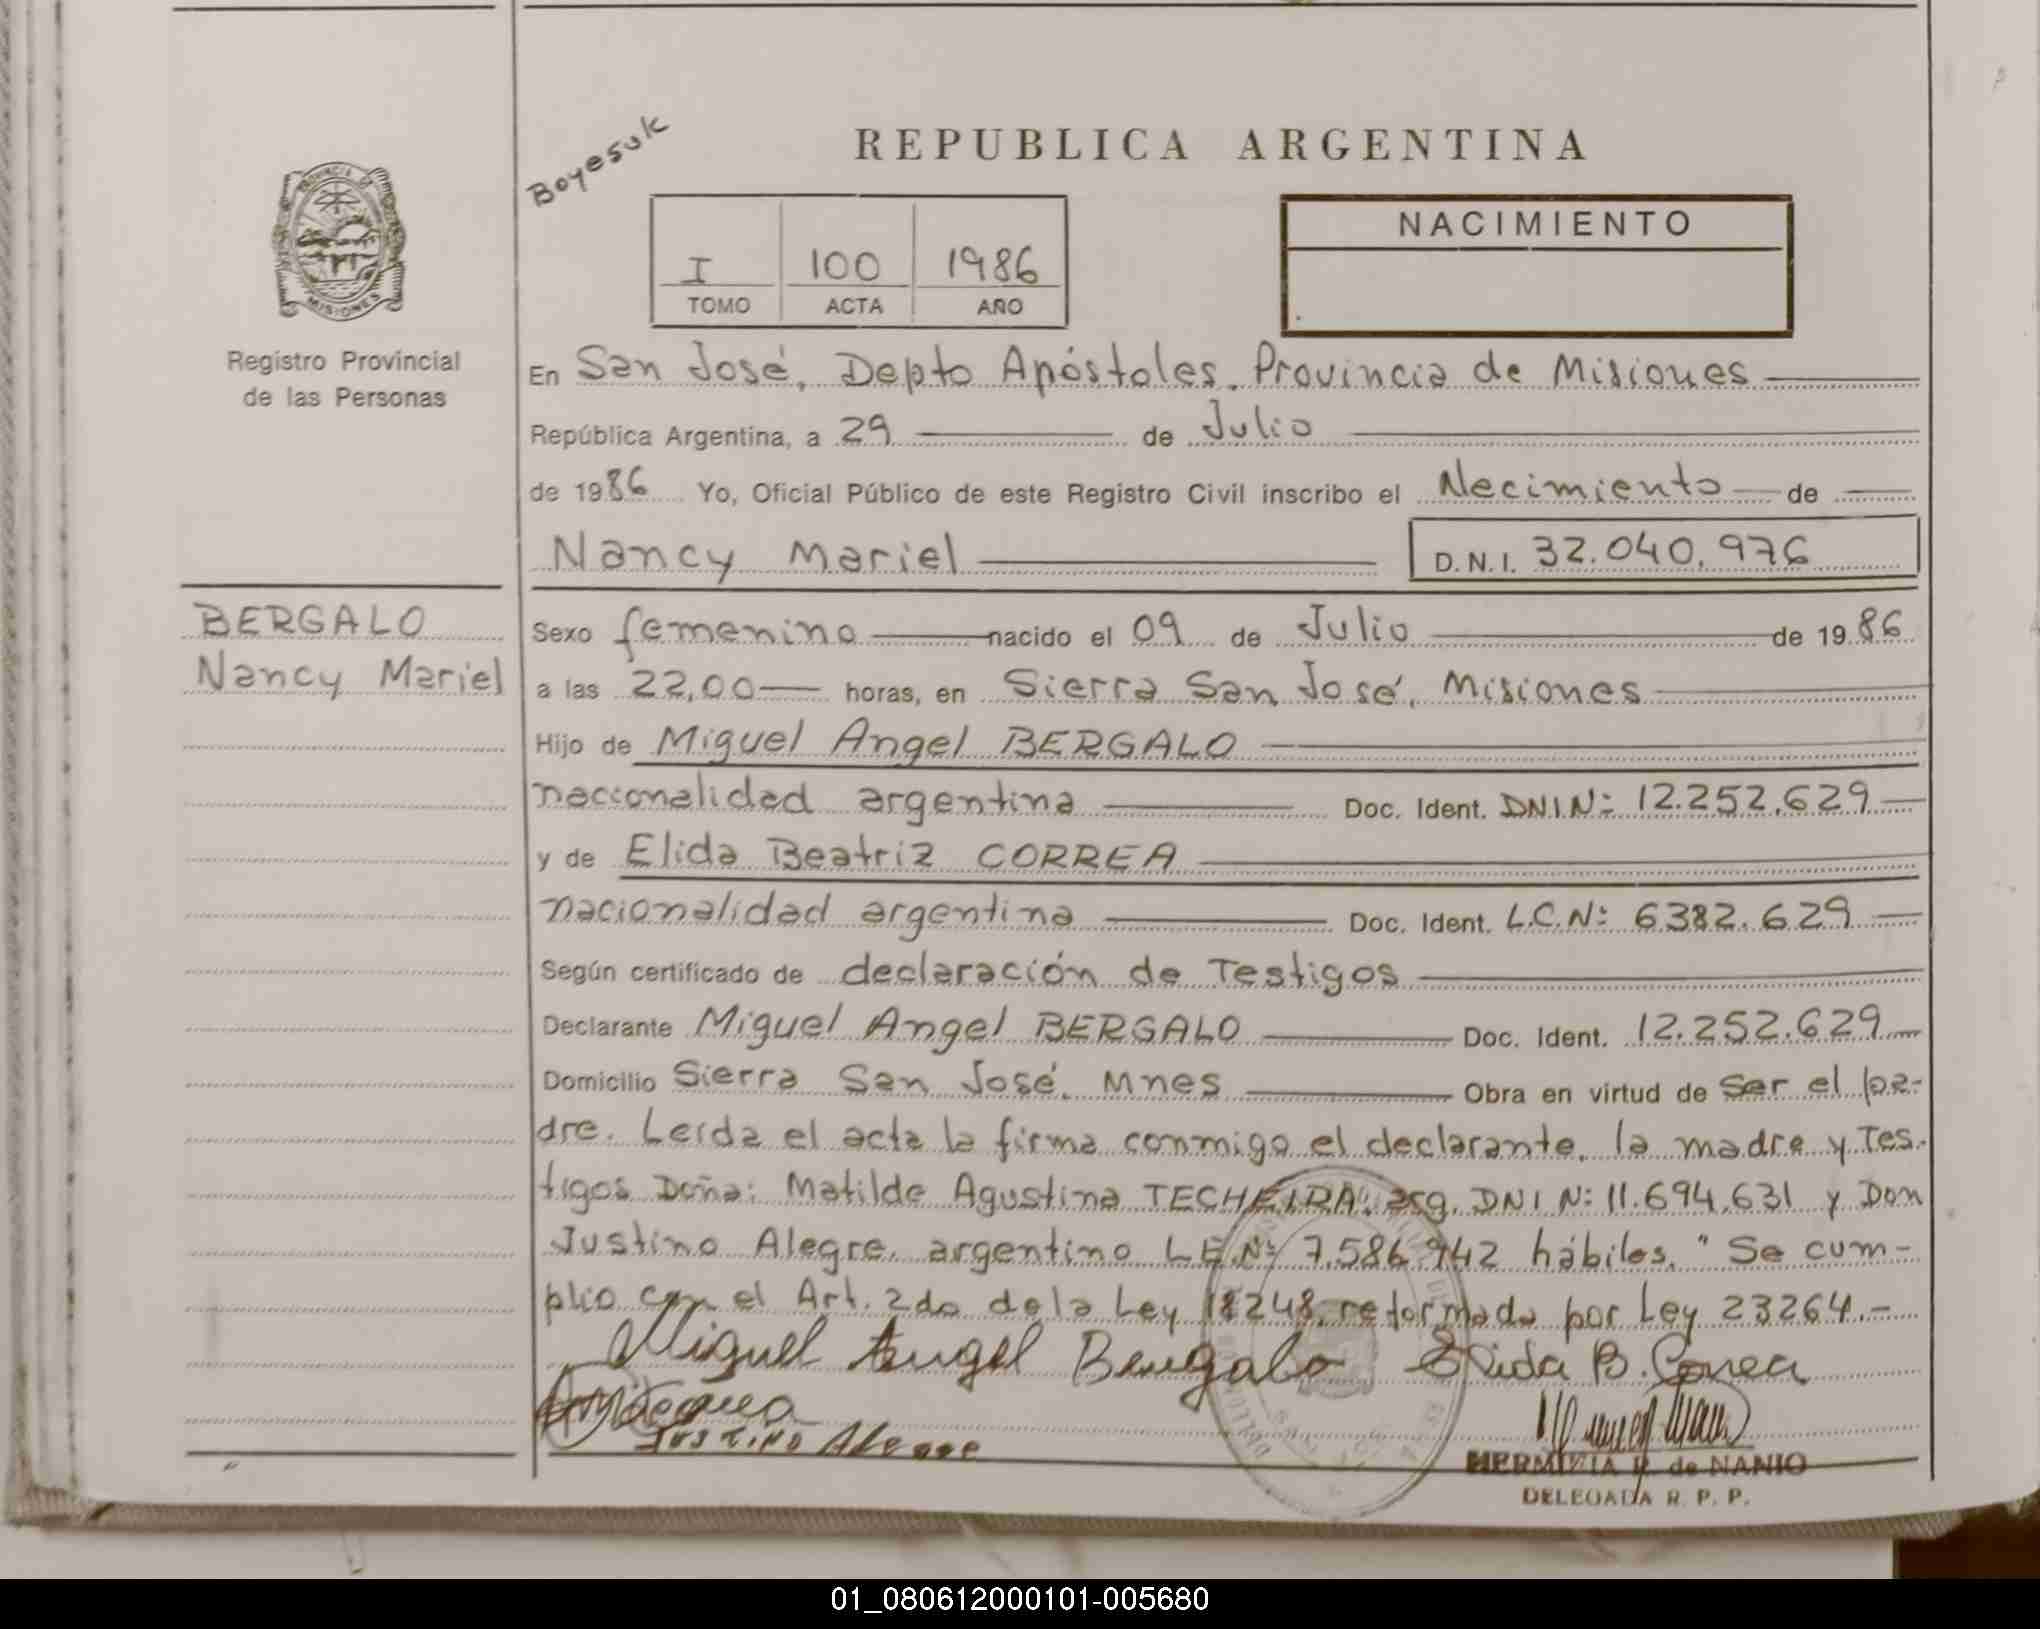 Boyesuk
REPUBLICA ARGENTINA
PROVINCIA DE
MISIONES
Registro Provincial
de las Personas
I 100 1986
TOMO ACTA AÑO
NACIMIENTO
En San José, Depto Apóstoles. Provincia de Misiones
República Argentina, a 29 de Julio
de 1986 Yo, Oficial Público de este Registro Civil inscribo el Necimiento de
Nancy Mariel D.N.I. 32.040.976
BERGALO
Nancy Mariel
Sexo femenino nacido el 09 de Julio de 1986
a las 22,00 horas, en Sierra San José, Misiones
Hijo de Miguel Angel BERGALO
nacionalidad argentina Doc. Ident. DNI N: 12.252.629
y de Elida Beatriz CORREA
nacionalidad argentina Doc. Ident. L.C.N: 6382.629
Según certificado de declaración de Testigos
Declarante Miguel Angel BERGALO Doc. Ident. 12.252.629
Domicilio Sierra San José. Mnes Obra en virtud de ser el pa-
dre. Leída el acta la firma conmigo el declarante, la madre y Tes-
tigos Doña: Matilde Agustina TECHEIRA, arg. DNI N: 11.694.631 y Don
Justino Alegre, argentino L.E.N: 7.586.942 hábiles. "Se cum-
plio con el Art. 2do de la Ley 18248, reformada por Ley 23264.-
Miguel Angel Bergalo Elida B. Correa
Justino Alegre
HERMINIA de NANIO
DELEGADA R. P. P.
01_080612000101-005680